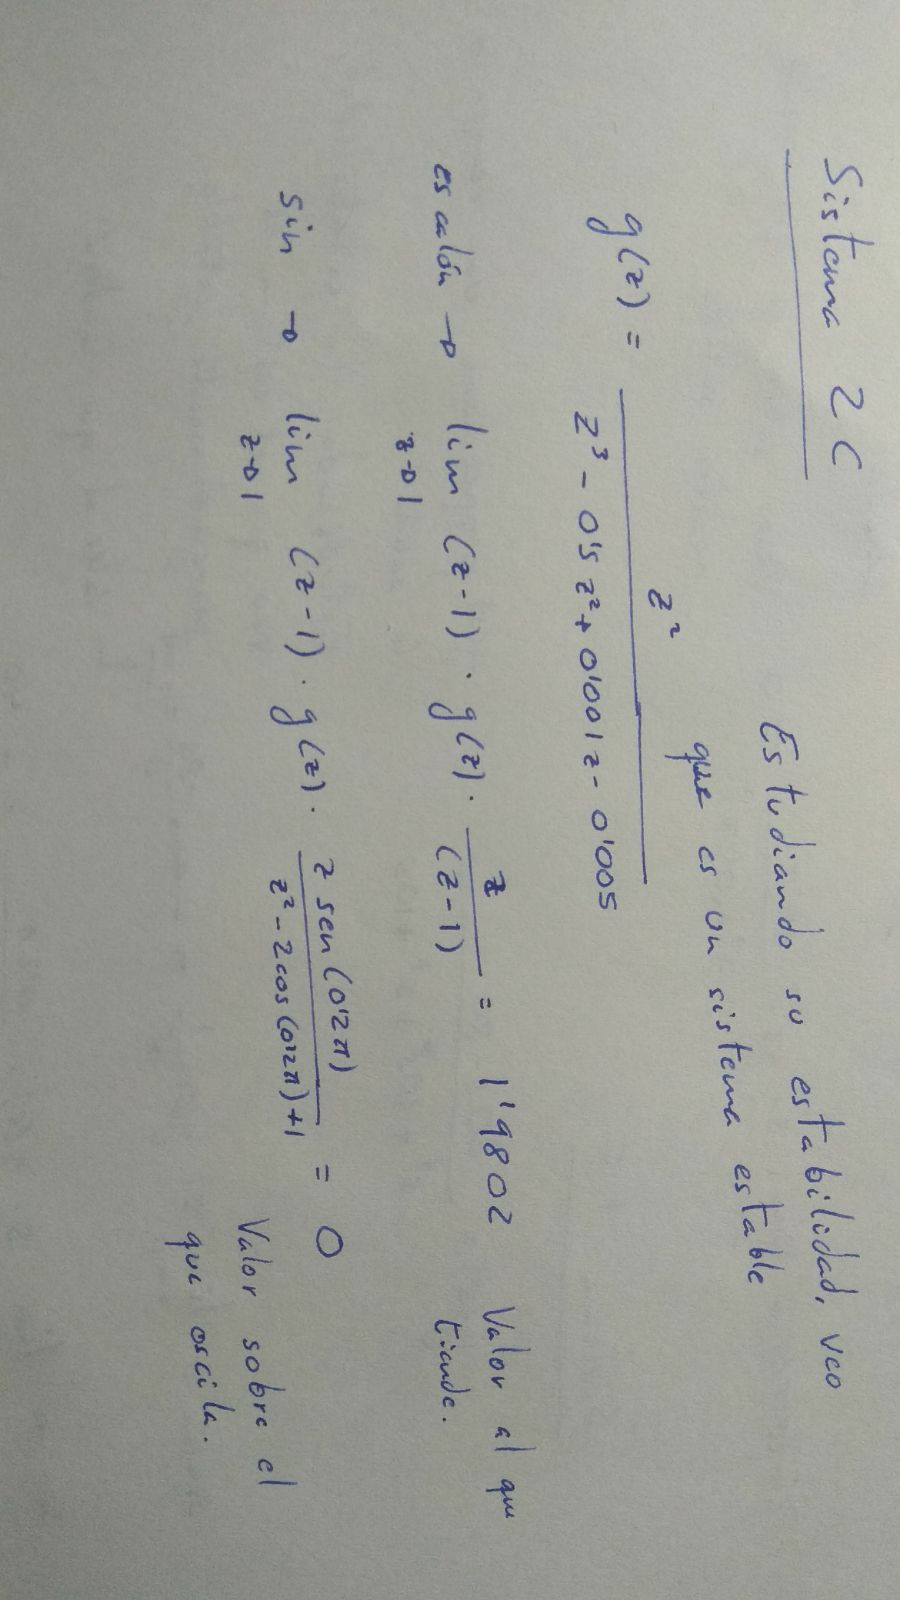 Sistema 2C
Estudiando su estabilidad, veo
que es un sistema estable
g(z) = z² / (z³ - 0'5 z² + 0'001 z - 0'005)
escalón → lim z→1 (z-1) · g(z) · z / (z-1) = 1'9802 Valor al que
tiende.
sin → lim z→1 (z-1) · g(z) · z sen(0'2π) / (z² - 2cos(0'2π) + 1) = 0
Valor sobre el
que oscila.